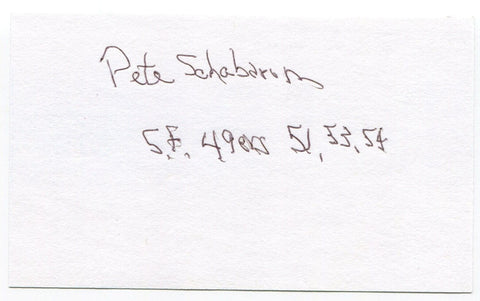 Pete Schabarum
S.F. 49ers 51, 53, 54